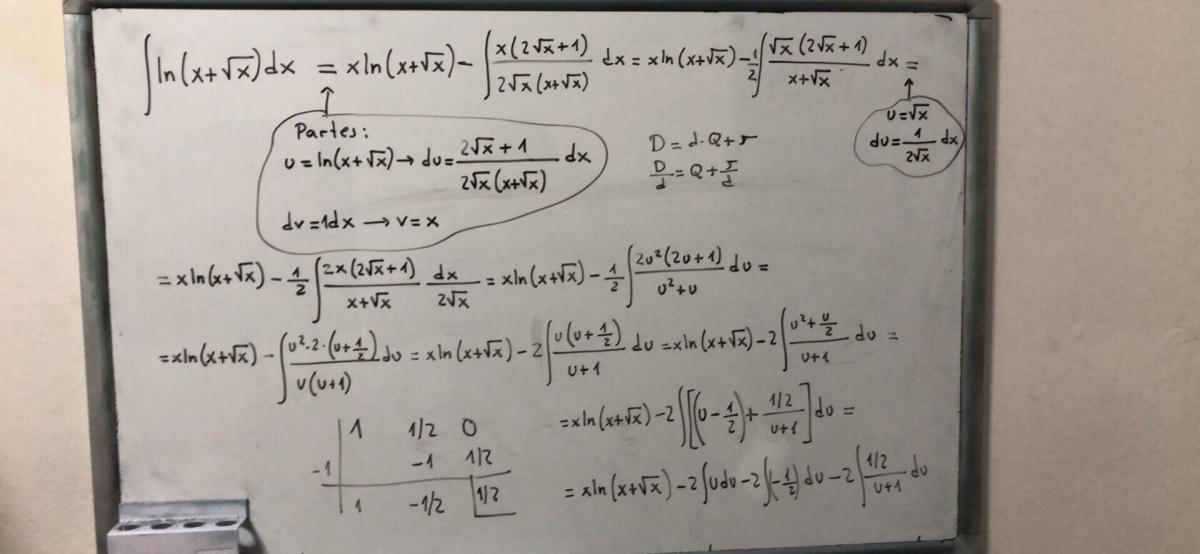 ∫ln(x+√x)dx = xln(x+√x) - ∫ x(2√x+1)/2√x(x+√x) dx = xln(x+√x) - 1/2 ∫ √x(2√x+1)/x+√x dx =
Partes:
u = ln(x+√x) → du = 2√x+1/2√x(x+√x) dx
dv = 1dx → v = x
D = d·Q+r
D/d = Q + r/d
u = √x
du = 1/2√x dx
= xln(x+√x) - 1/2 ∫ 2x(2√x+1)/x+√x dx/2√x = xln(x+√x) - 1/2 ∫ 2u²(2u+1)/u²+u du =
= xln(x+√x) - ∫ u²·2·(u+1/2)/u(u+1) du = xln(x+√x) - 2∫ u(u+1/2)/u+1 du = xln(x+√x) - 2∫ u²+u/2/u+1 du =
1 1/2 0
-1 -1 1/2
1 -1/2 1/2
= xln(x+√x) - 2∫[(u-1/2) + 1/2/u+1]du =
= xln(x+√x) - 2∫udu - 2∫(-1/2)du - 2∫ 1/2/u+1 du